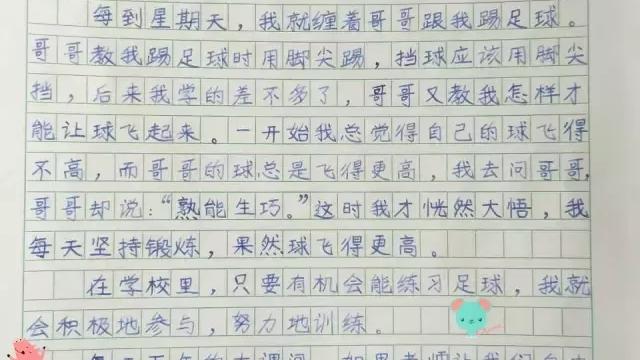 每到星期天，我就缠着哥哥跟我踢足球。
哥哥教我踢足球时用脚尖踢，挡球应该用脚尖
挡，后来我学的差不多了，哥哥又教我怎样才
能让球飞起来。一开始我总觉得自己的球飞得
不高，而哥哥的球总是飞得更高，我去问哥哥，
哥哥却说：“熟能生巧。”这时我才恍然大悟，我
每天坚持锻炼，果然球飞得更高。
在学校里，只要有机会能练习足球，我就
会积极地参与，努力地训练。